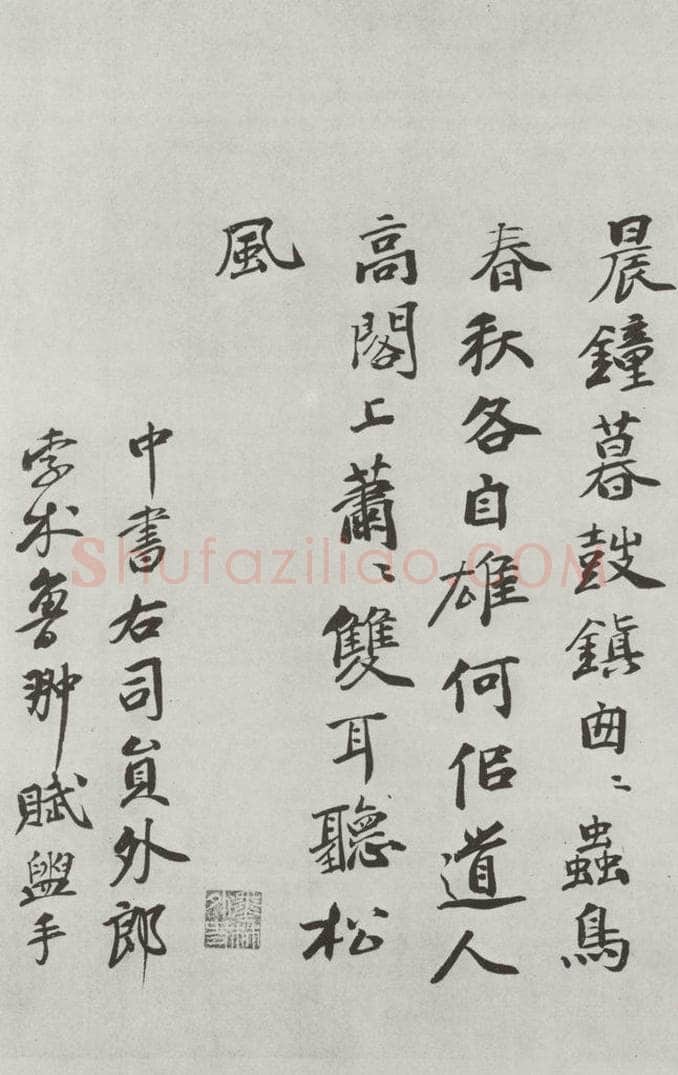 晨鐘暮鼓鎮匆〻蟲鳥
春秋各自雄何佀道人
高閣上蕭〻雙耳聽松
風
中書右司員外郎
孛术魯翀賦盥手
Shufaziliao.COM